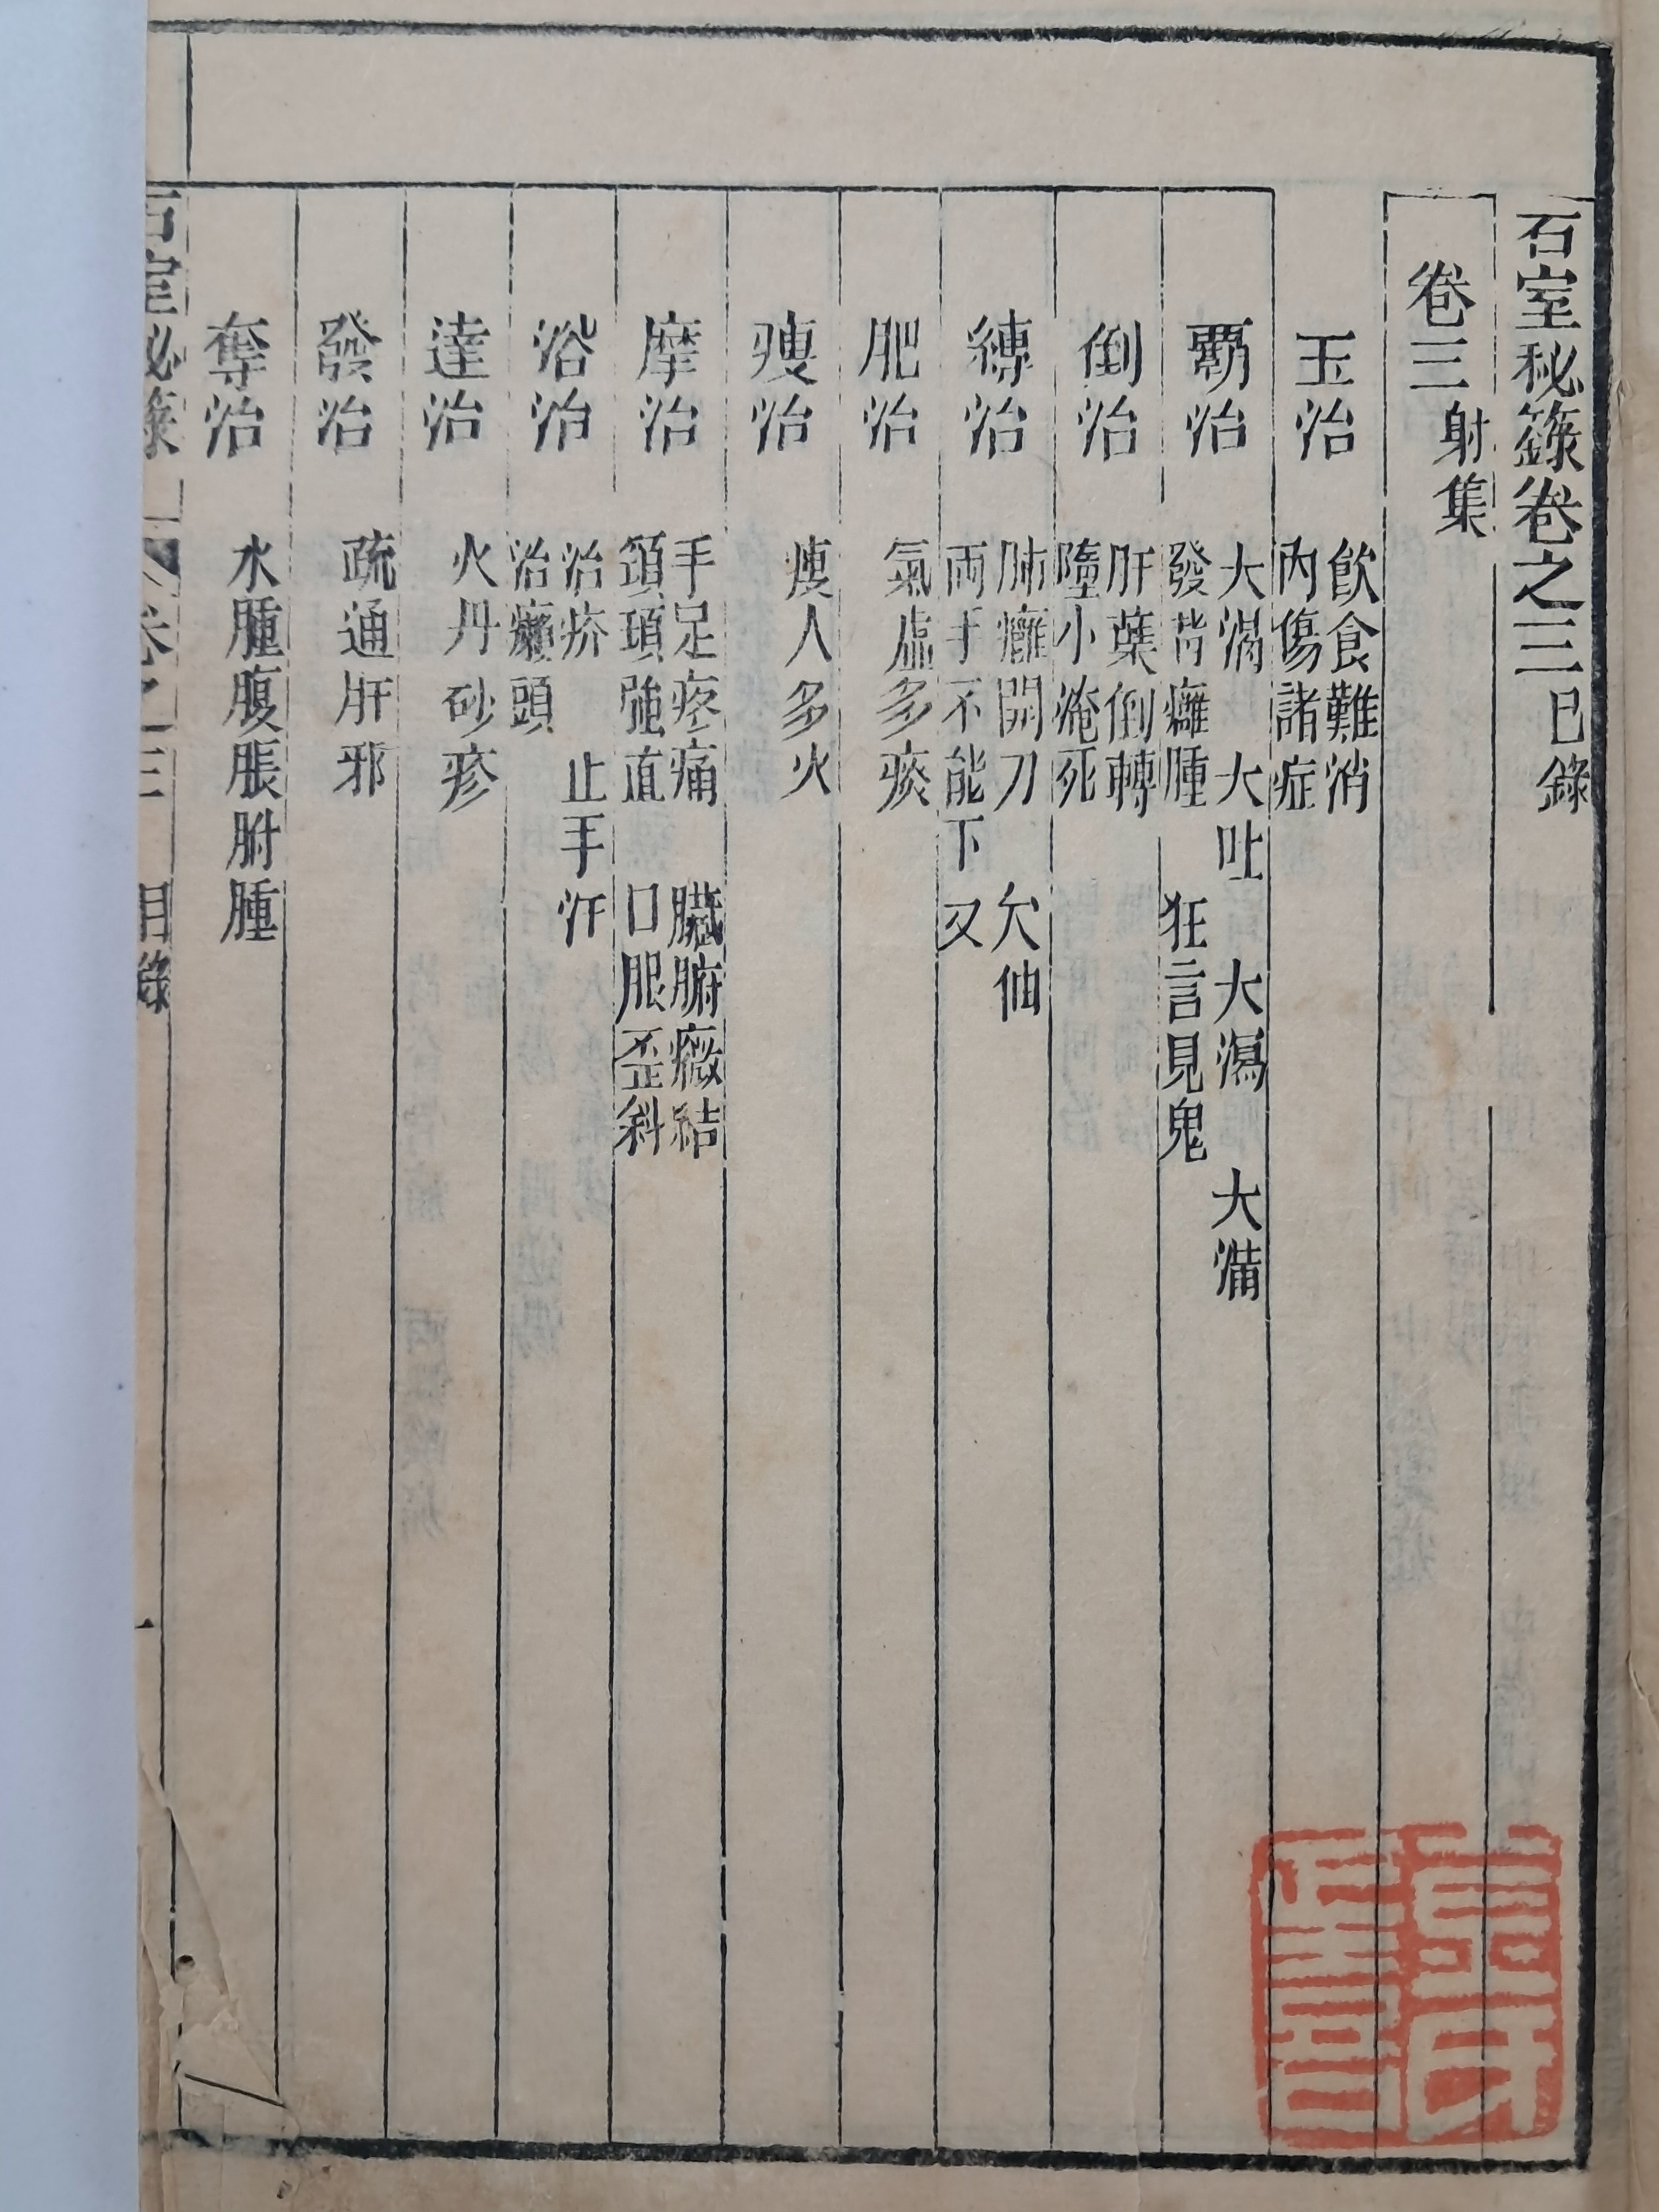 石室秘籙卷之三目錄
卷三 射集
王治 飲食難消
內傷諸症
霸治 大渴 大吐 大瀉 大滿
發背癰腫 狂言見鬼
倒治 肝葉倒轉
墮水淹死
縛治 肺癰開刀 欠伸
兩手不能下又
肥治 氣虛多痰
瘦治 瘦人多火
摩治 手足疼痛 臟腑癥結
頭項強直 口眼歪斜
浴治 治疥 止手汗
治癩頭
達治 火丹砂疹
發治 疏通肝邪
奪治 水腫腹脹胕腫
石室秘籙 卷之三 目錄 一